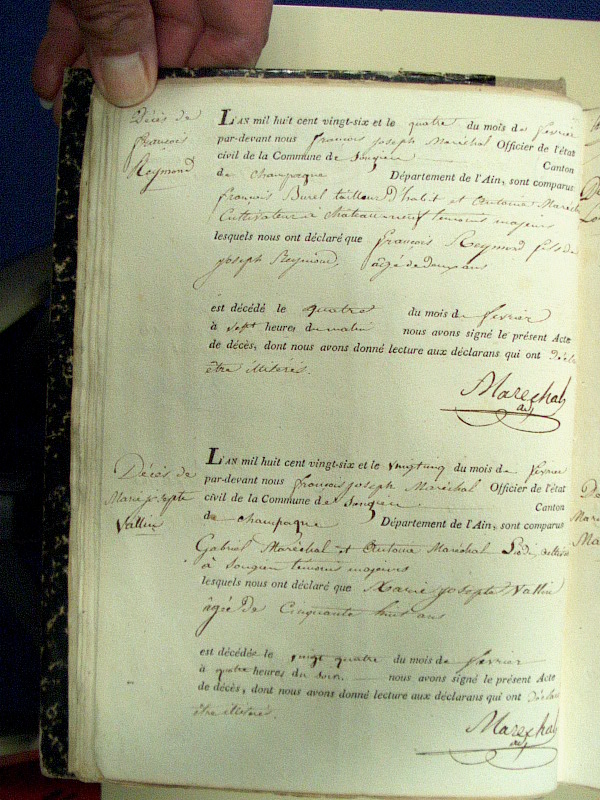 Décès de
françois
Reymond
L'AN mil huit cent vingt-six et le quatre du mois de fevrier
par-devant nous françois joseph Maréchal Officier de l'état
civil de la Commune de Songieu Canton
de champagne Département de l'Ain, sont comparus
françois Burel tailleur d'habit et Antoine Maréch
Cultivateur à chateauneuf temoins majeurs
lesquels nous ont déclaré que françois Reymond fils de
joseph Reymond, âgé de deux ans
est décédé le quatre du mois de fevrier
à sept heures du matin nous avons signé le présent Acte
de décès, dont nous avons donné lecture aux déclarans qui ont
être illiterés.
Marechal
adj
Décès de
Marie josepte
Vallin
L'AN mil huit cent vingt-six et le vingtcinq du mois de fevrier
par-devant nous françois joseph Maréchal Officier de l'état
civil de la Commune de Songieu Canton
de champagne Département de l'Ain, sont comparus
Gabriel Maréchal et Antoine Maréchal
à Songieu temoins majeurs
lesquels nous ont déclaré que Marie josepte Vallin
âgée de Cinquante huit ans
est décédée le vingt quatre du mois de fevrier
à quatre heures du soir nous avons signé le présent Acte
de décès, dont nous avons donné lecture aux déclarans qui ont
être illiterés.
Marechal
adj